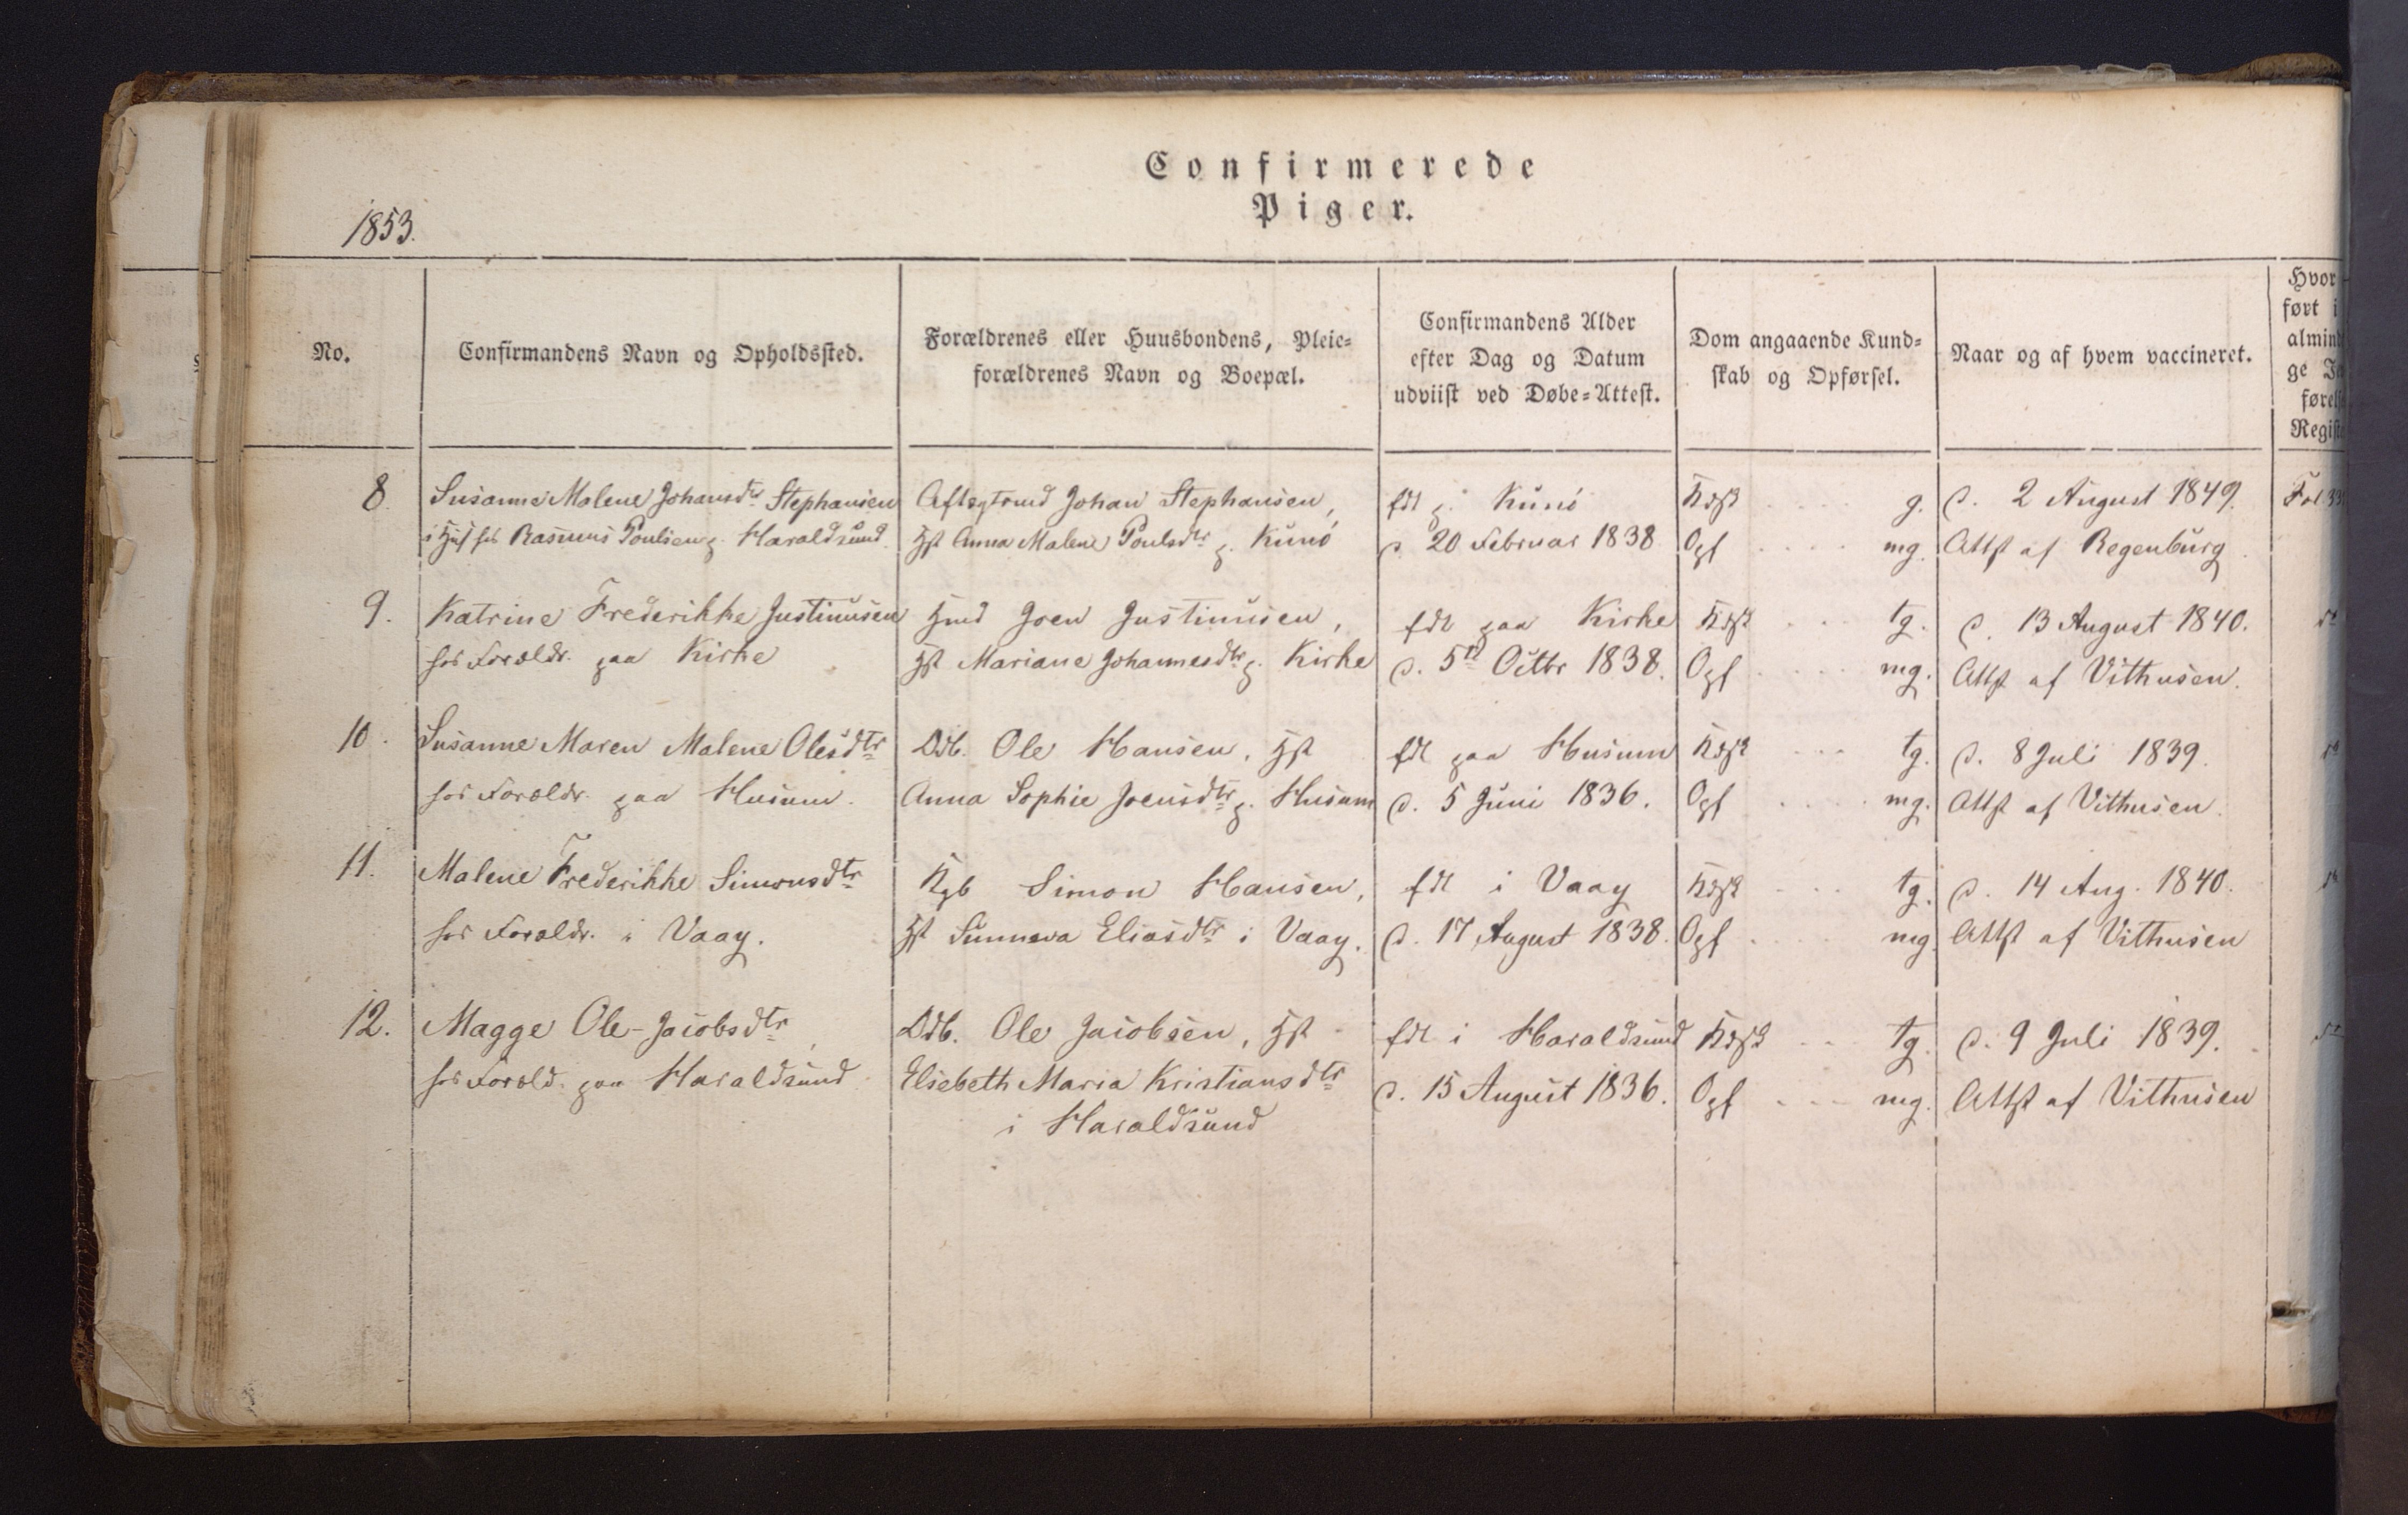 Confirmerede
Piger.
1853.
No.
Confirmandens Navn og Opholdssted.
Forældrenes eller Huusbondens, Pleie-
forældrenes Navn og Boepæl.
Confirmandens Alder
efter Dag og Datum
udviist ved Døbe-Attest.
Dom angaaende Kund-
skab og Opførsel.
Naar og af hvem vaccineret.
Hvor
ført i
almind
ge
førels
Regist
8
Susanne Malene Johansdtr Stephansen
hos Rasmus Poulsen p. Haraldsund
Johan Stephansen,
Hst Anna Malene Poulsdtr p. Kunö
fdt p. Kunö
d. 20 Februar 1838
Kdsk . . . g.
Opf . . . . mg.
d. 2 August 1849.
Attst af Regenburg
Fol 33
9.
Katrine Frederikke Justinusen
hos Forældr. paa Kirke
Hmd Joen Justinusen,
Hst Mariane Johannesdtr p. Kirke
fdt paa Kirke
d. 5te Octbr 1838.
Kdsk . . . tg.
Opf . . . . mg.
d. 13 August 1840.
Attst af Vithusen.
10.
Susanne Maren Malene Olesdtr
hos Forældr. paa Husum.
Ddb. Ole Hansen, Hst
Anna Sophie Joensdtr p. Husum
fdt paa Husum
d. 5 Juni 1836.
Kdsk . . . tg.
Opf . . . . mg.
d. 8 Juli 1839.
Attst af Vithusen.
11.
Malene Frederikke Simonsdtr
hos Forældr. i Vaag.
Kgb Simon Hansen,
Hst Sunneva Eliasdtr i Vaag.
fdt i Vaag
d. 17 August 1838.
Kdsk . . . tg.
Opf . . . . mg.
d. 14 Aug. 1840.
Attst af Vithusen
12.
Magge Ole-Jacobsdtr,
hos Foræld. paa Haraldsund
Ddb. Ole Jacobsen, Hst
Elsebeth Maria Kristiansdtr
i Haraldsund
fdt i Haraldsund
d. 15 August 1836.
Kdsk . . . tg.
Opf . . . . mg.
d. 9 Juli 1839.
Attst af Vithusen